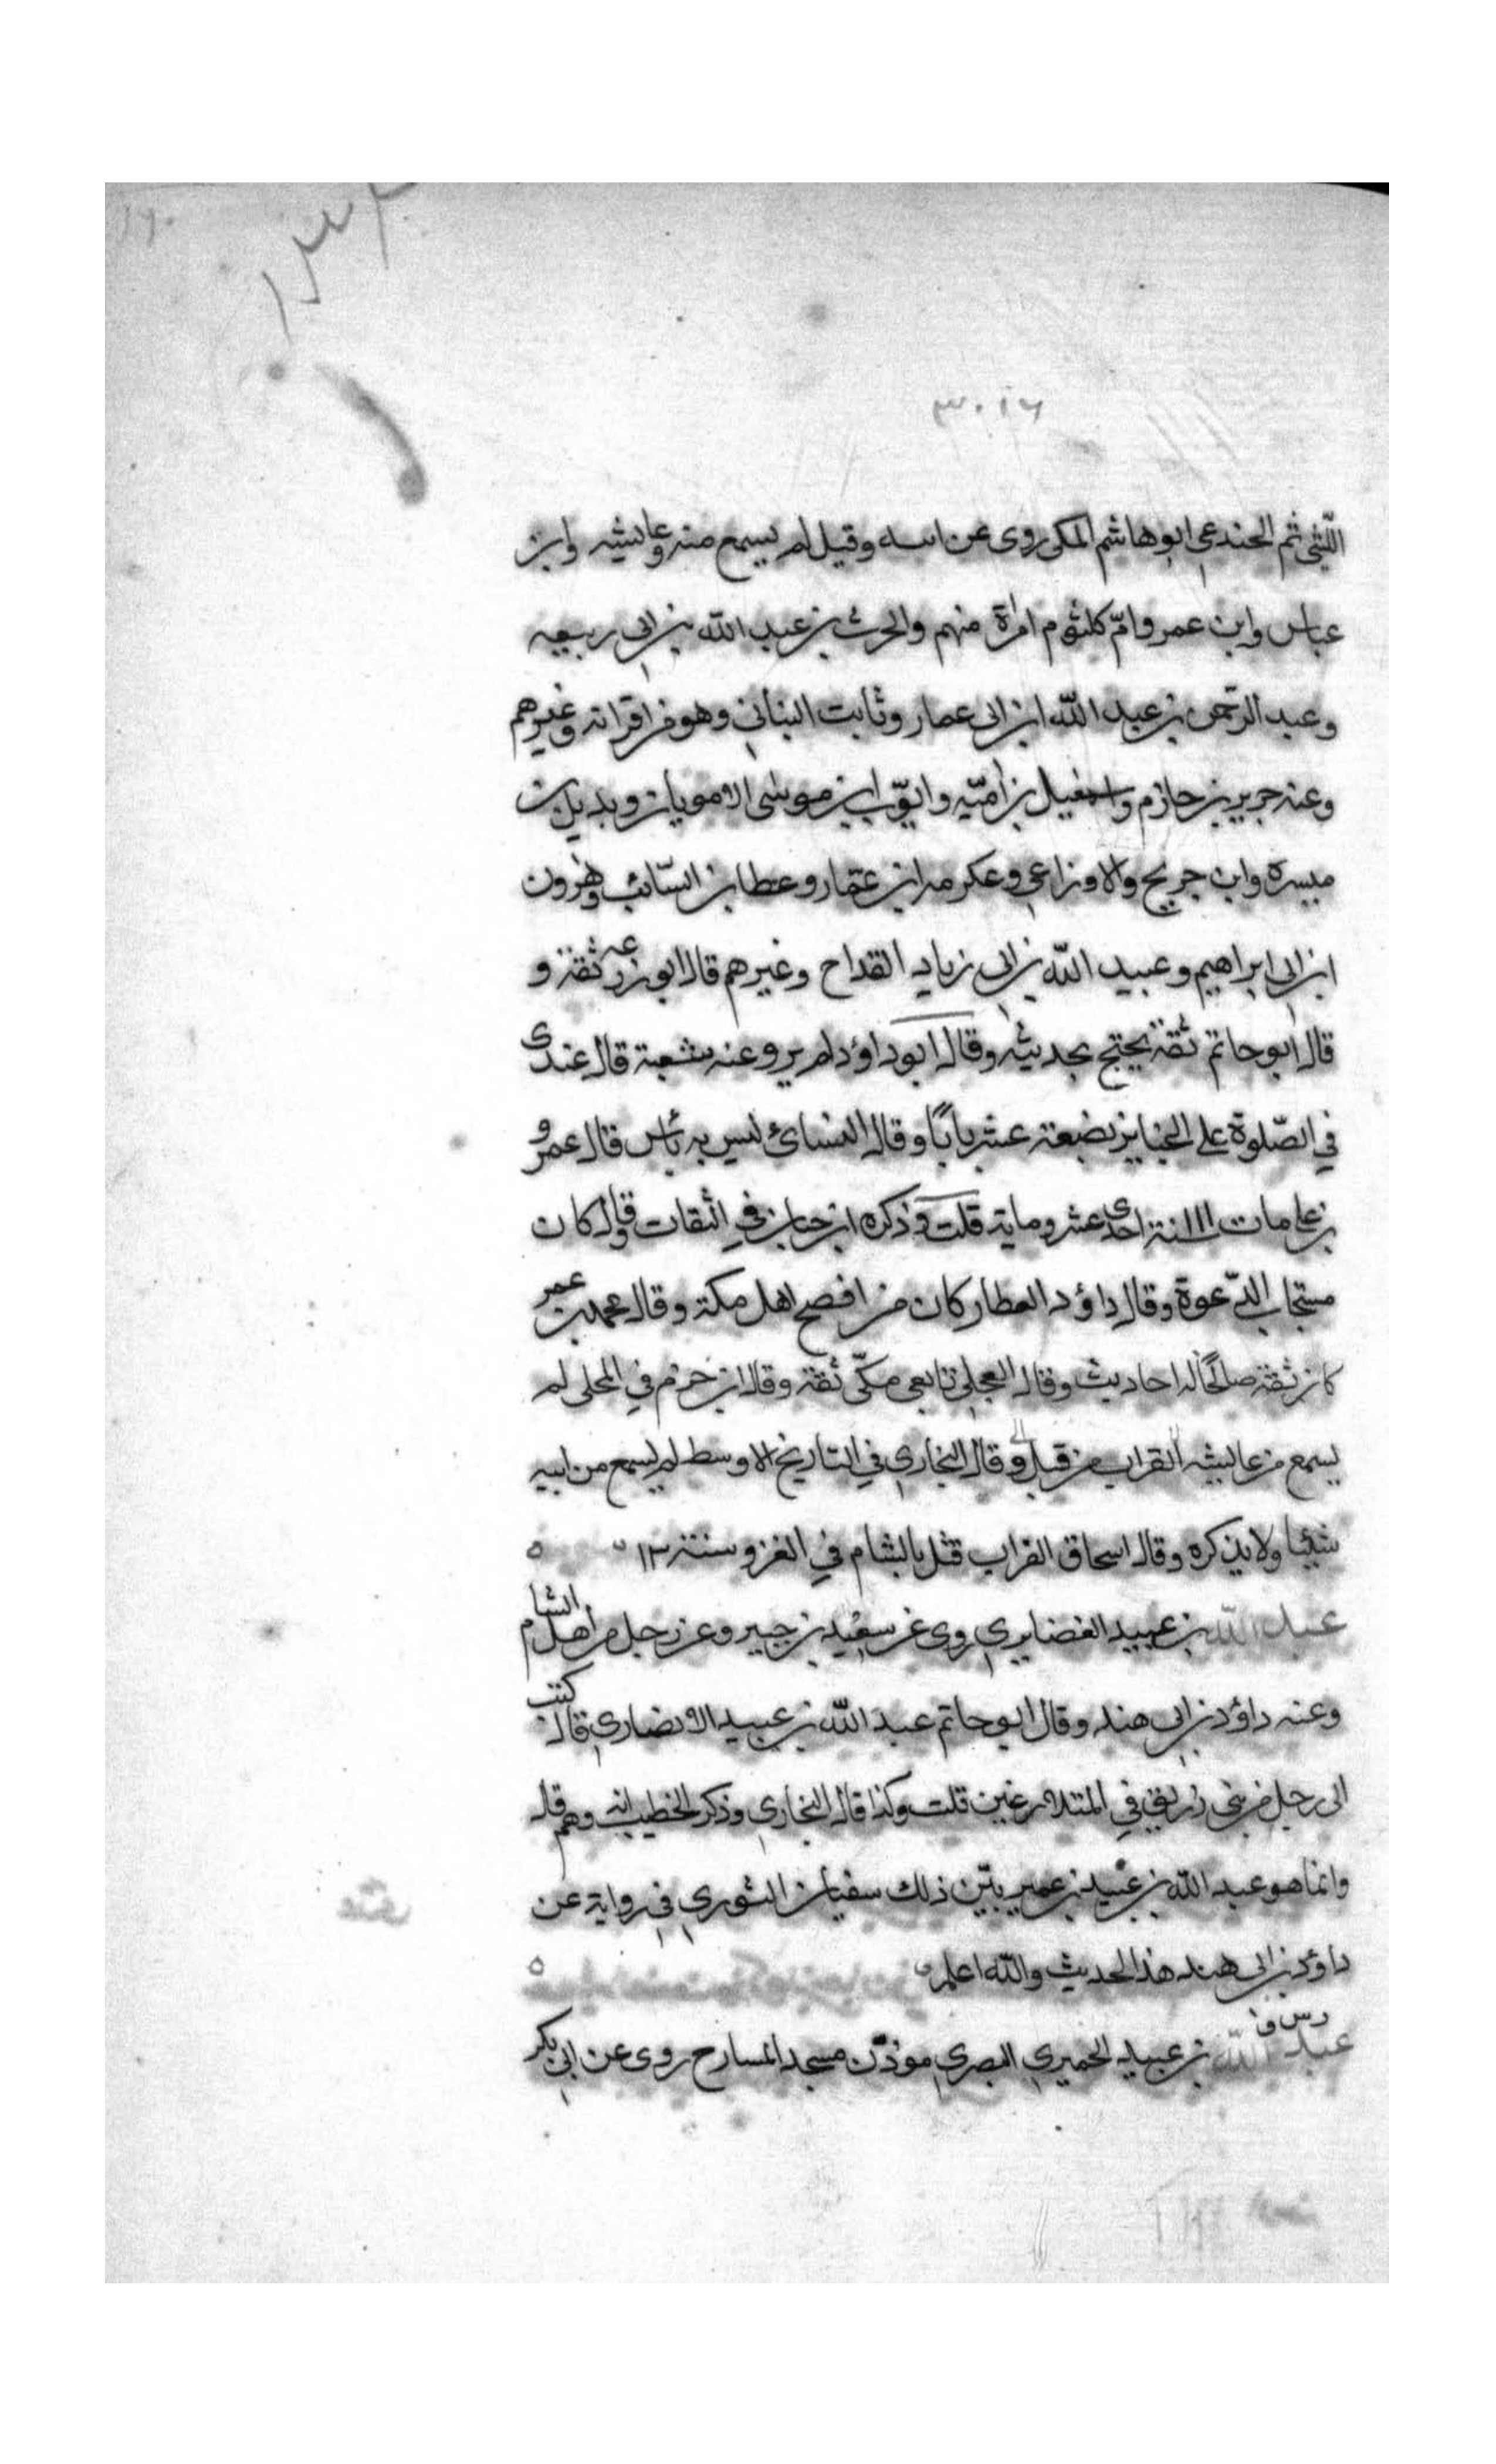 ١٣٢
٣٠١٦
اللّيثى ثم الجندعى ابو هاشم المكى روى عن ابيه وقيل لم يسمع منه وعايشه وابن
عباس وابن عمر وامّ كلثوم امراة منهم والحرث بن عبد الله بن ابى ربيعه
وعبد الرحمن بن عبد الله ابن ابى عمار وثابت البنانى وهو من اقرانه وغيرهم
وعنه جرير بن حازم واسمعيل بن اميّه وايّوب ابن موسى الامويان وبديل بن
ميسرة وابن جريج والاوزاعى وعكرمه ابن عمّار وعطا بن السّائب وهرون
ابن ابى ابراهيم وعبيد الله بن ابى زياد القداح وغيرهم قال ابو زرعه ثقة و
قال ابو حاتم ثقة يحتج بحديثه وقال ابو داؤد لم يرو عنه شعبة قال عندى
في الصّلوة على الجنايز بضعة عشر بابًا وقال النسائ ليس به بأس قال عمرو
بن على مات ١١١ سنة احدى عشر وماية قلت وذكره ابن حبان في الثقات وقال كان
مستجاب الدّعوة وقال داؤد العطار كان من افصح اهل مكة وقال محمد بن عمر
كان ثقة صالحًا له احاديث وقال العجلى تابعى مكّى ثقة وقال ابن حزم في المحلى لم
يسمع من عايشه القراب من قبل وقال البخارى في التاريخ الاوسط لم يسمع من ابيه
شيئا ولا يذكره وقال اسحاق القراب قتل بالشام في الغزو سنة ١٣
عبد الله بن عبيد الفضايرى روى عن سعيد بن جبير وعن رجل من اهل الشام
وعنه داؤد بن ابى هند وقال ابو حاتم عبد الله بن عبيد الانصارى قال كتب
الى رجل من بنى زريق في المتلاعنين قلت وكذا قال البخارى وذكر الخطيب انه وهم قال
وانما هو عبد الله بن عبيد بن عمير بيّن ذلك سفيان الثورى في رواية عن
داؤد بن ابى هند هذا الحديث والله اعلم
د س ق
عبد الله بن عبيد الحميرى البصرى موذّن مسجد المسارح روى عن ابى بكر